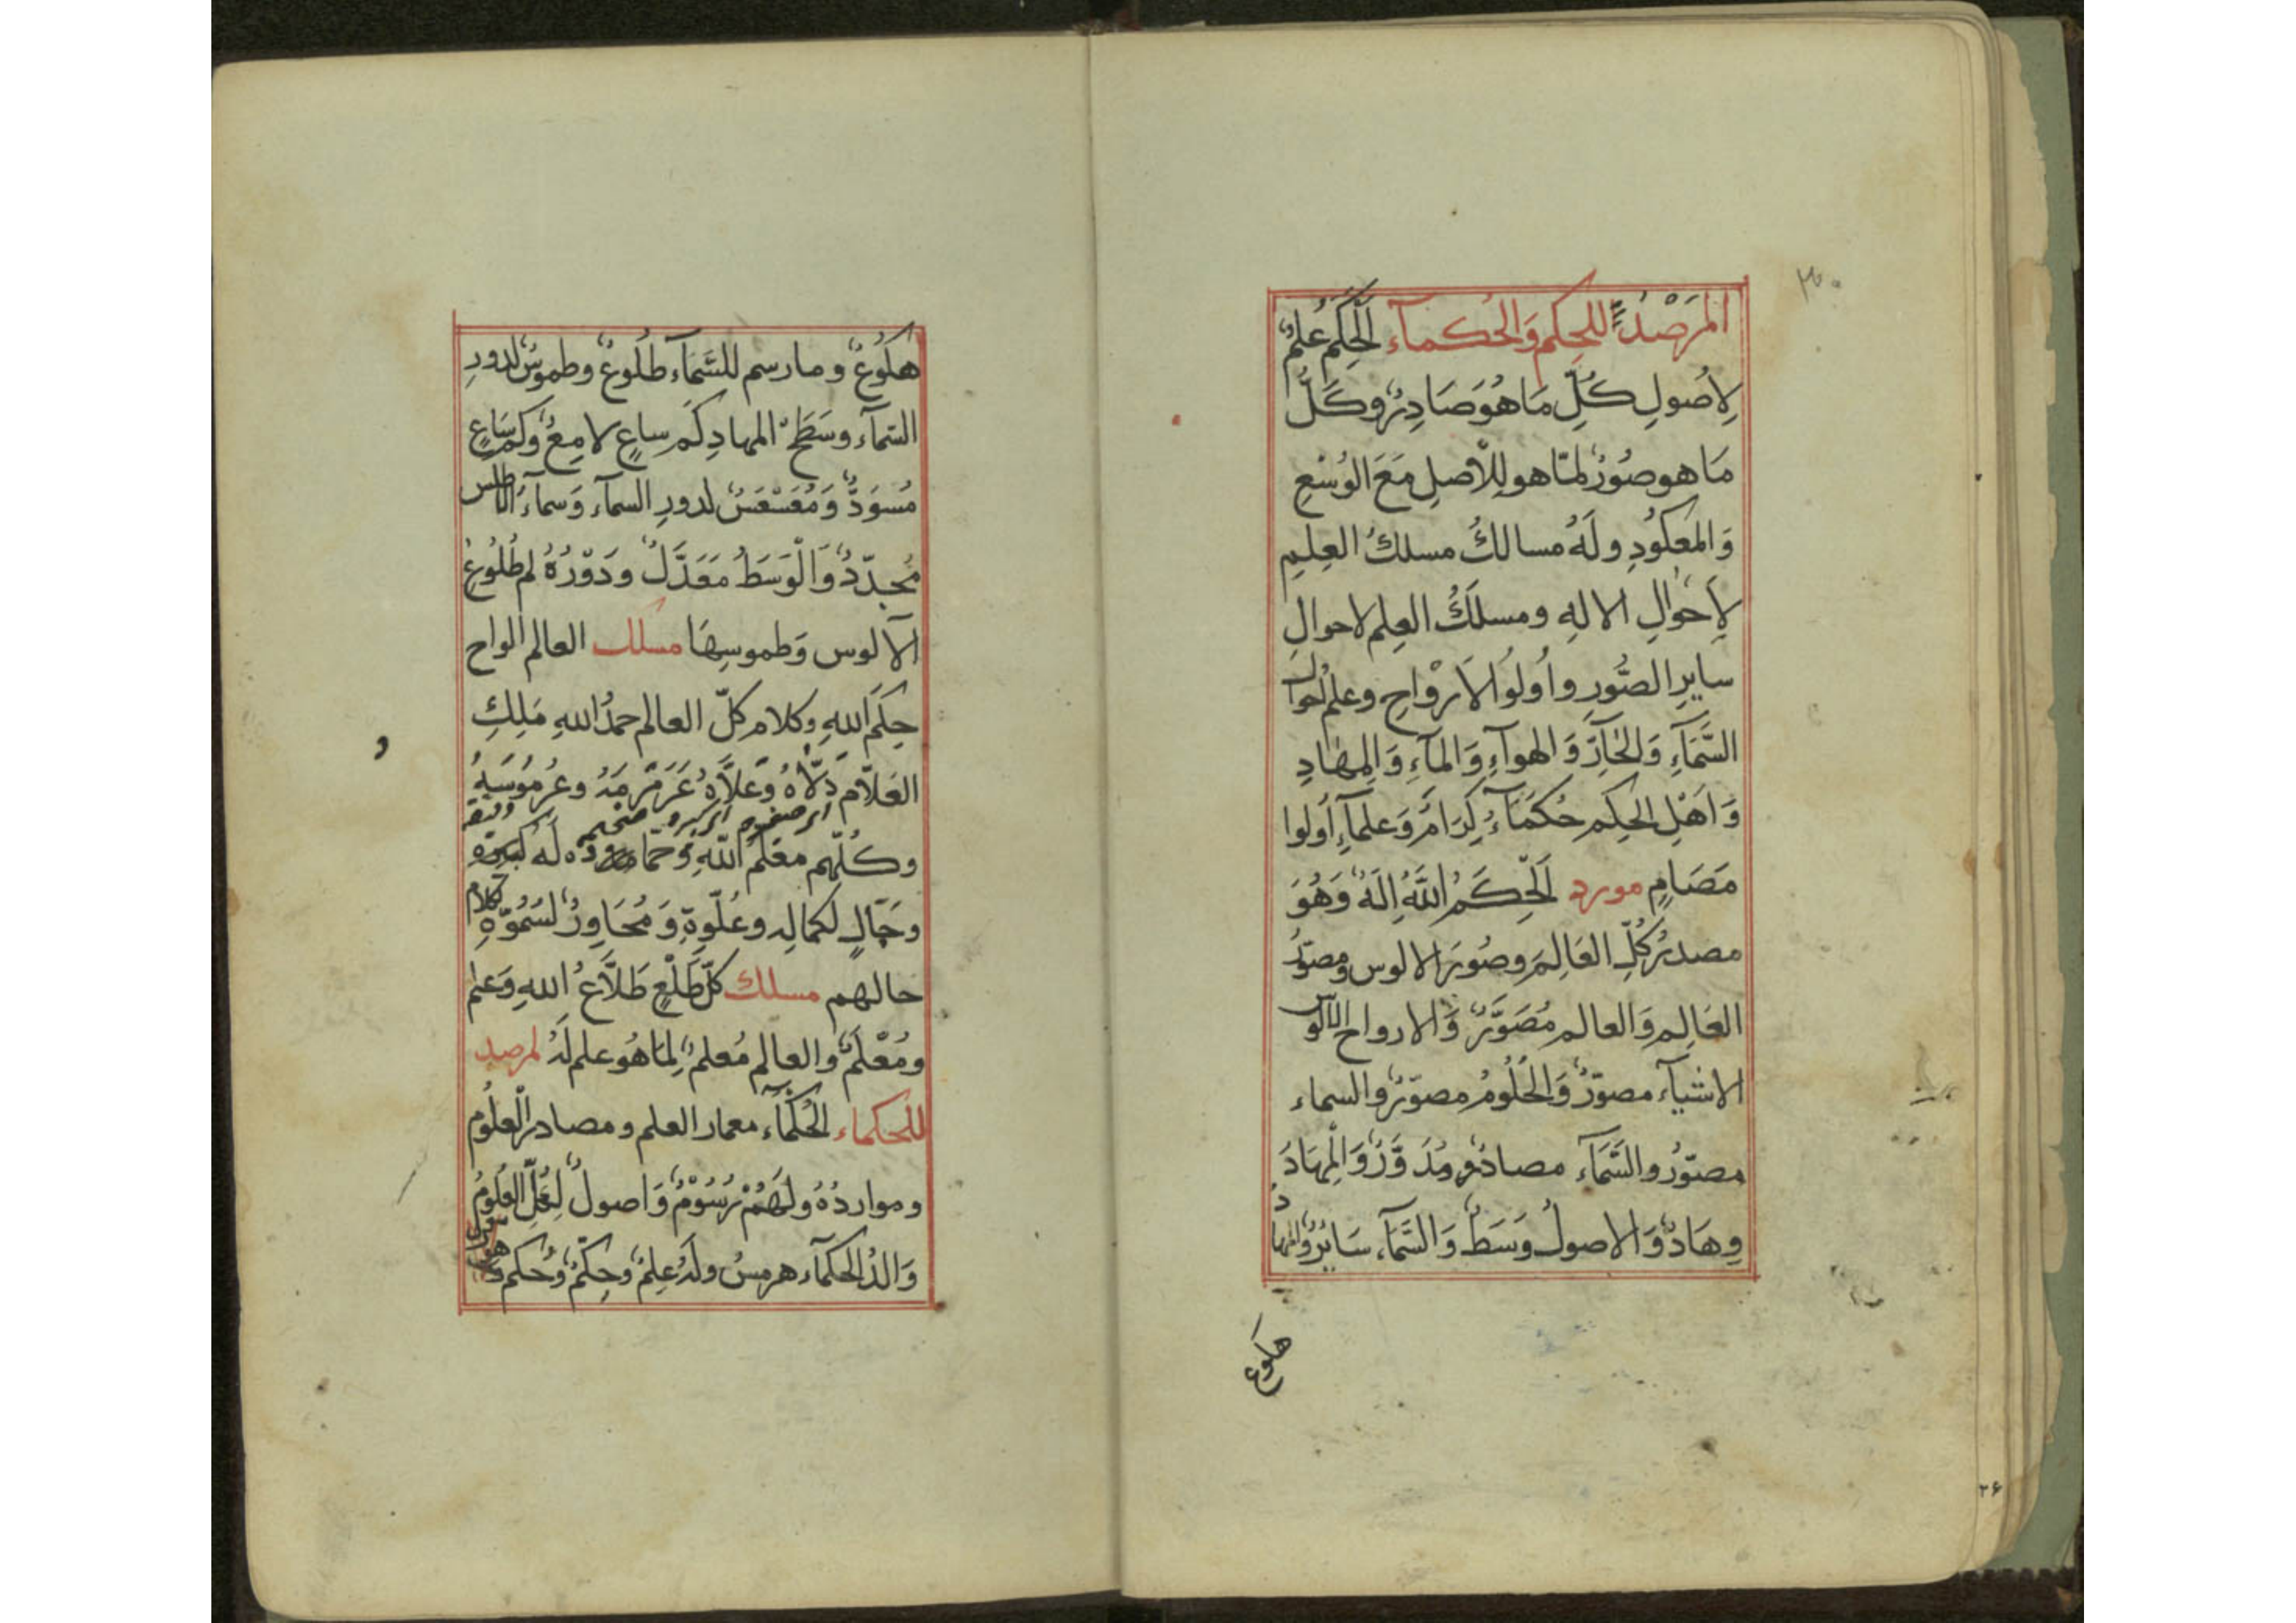 المَرْصَدُ للحِكَم وَالحُكماء الحِكَمُ عِلمٌ
لِأُصولِ كُلِّ مَا هُوَ صَادِرٌ وكَلُّ
مَا هو صُورٌ لمّا هو لِلْأصلِ مَعَ الوُسْعِ
وَالمَعكُودِ ولَهُ مسالكُ مسلكُ العِلمِ
لِأَحوَالِ الالهِ ومسلَكُ العِلم لاحوالِ
سايرِ الصُّورِ واُولُوالاَرْواحِ وعِلمُ احوال
السَّمَآءِ وَالحَآرِّ وَالهوآءِ وَالمآءِ وَالمِهَادِ
وَاَهْلِ الحِكَمِ حُكمَآءُ كِرَامٌ وَعلمآءِ اُولوا
مَصَامٍ مورد اَلْحِكَمُ اللَّهُ اِلَهٌ وَهُوَ
مصدرُ كُلِّ العَالِمِ وصُورَ الالوس ومصوّرُ
العَالِمِ وَالعالم مُصَوَّرٌ وَالارواح الالوس
الاشيآء مصوّرٌ وَالحُلُومُ مصوّرٌ والسماء
مصوّرٌ والسَّمَآء مصادرٌ ومُدَوَّرٌ وَالْمِهَادُ
وِهَادٌ وَالاصولُ وَسَطٌ وَالسَّمَآء سَايرٌ والمهاد
هكوع
هكُوعٌ وما رسم للسَّمَآء طلُوعٌ وطموسٌ لدورِ
السّمآء وسَطحِ المهادِ كَم ساعٍ لامِعٌ وكَم سَاعٍ
مُسوَدٌّ وَمُعَسْعَسٌ لدورِ السمآء وَسمآءُ الاطلس
مُحدّدٌ وَالْوَسَطُ مَعَدَّلٌ ودَوْرُهُ لم طُلُوعُ
الآلوس وَطموسِهَا مسلك العالم الواح
حِكَمِ اللهِ وكلام كلّ العالم حمدُ اللهِ مَلِكِ
العَلّام دَلّاهُ وَعَلاَّهُ عَرَمْرَمَهُ وعُرمُوسَهُ
وكُلّهم معلمُ اللّهِ
وحَالٍ لكمالِه وعُلُوِّهِ وَمُحَاوِرٌ لسُمُوِّهِ كلام
حالهم مسلك كلّ طَلْعٍ طَلاَّعُ اللهِ وَعلم
ومُعْلَمٌ والعالم مُعلمٌ لِمَا هُو علم لَهُ المرصد
للحكماء الحُكمآء معمار العلم ومصادر العلُوم
ومواردُهُ ولَهُمْ رُسُوْمٌ وَاصولٌ لِكُلِّ العُلُومُ
وَالدُ الحكمآء هرمسُ ولَهُ عِلمٌ وحِكَمٌ وحُكم